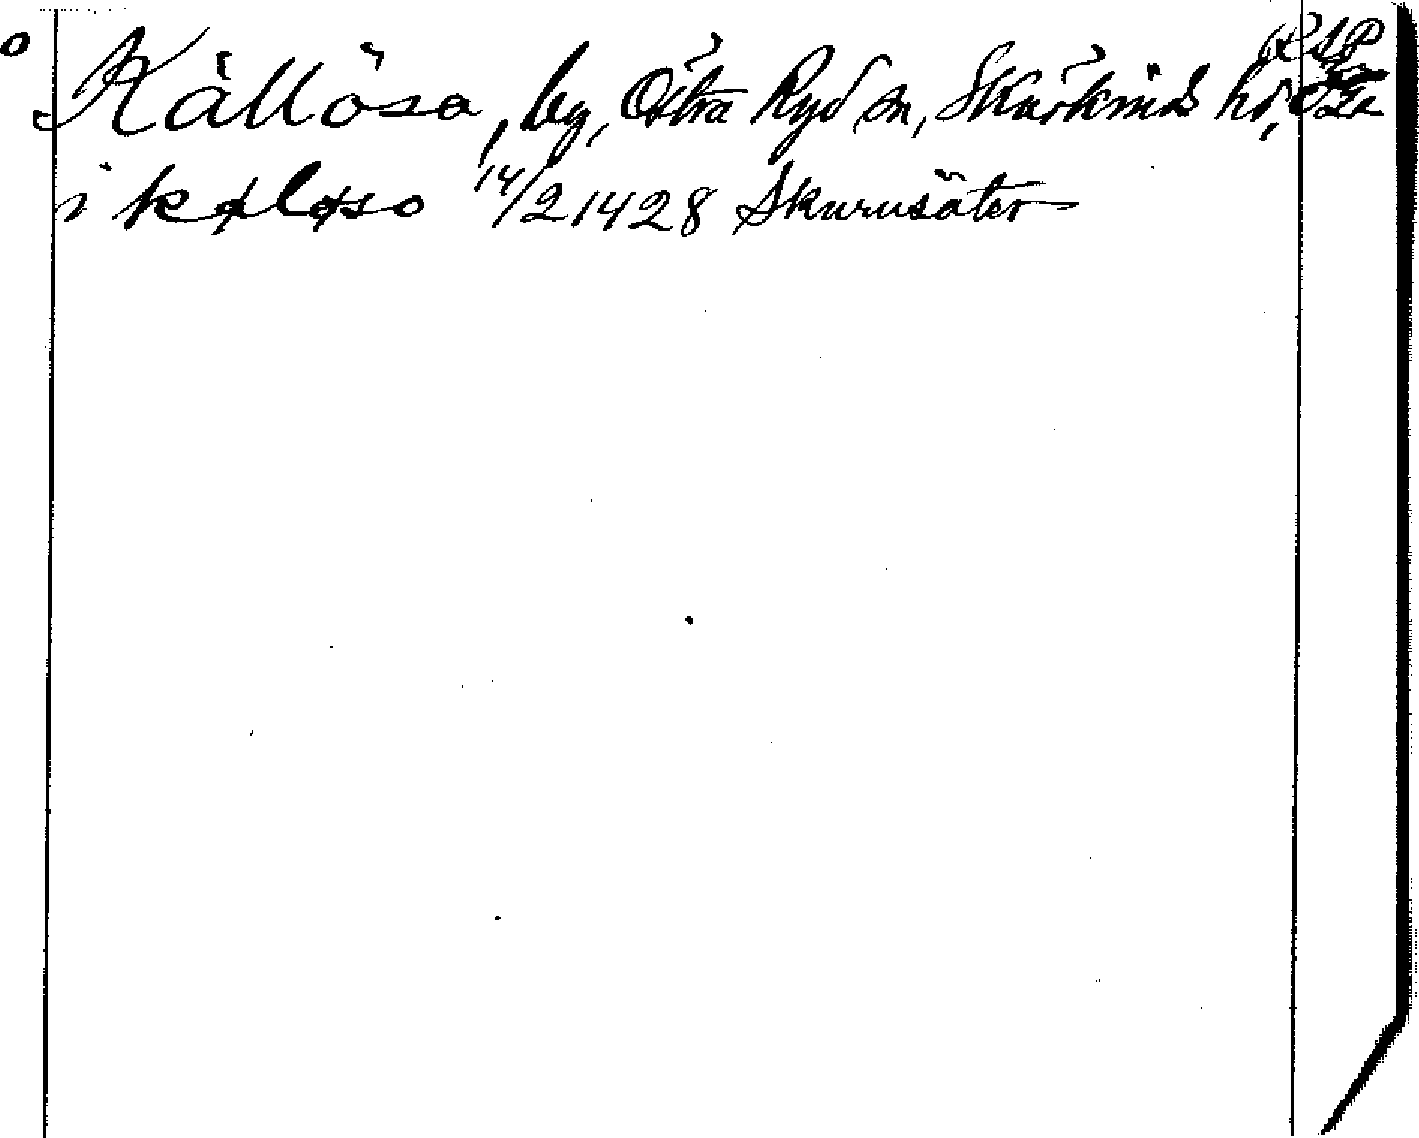 Källösa, by, Östra Ryd sn, Skärkind hd,
i køløso 14/2 1428 Skurusäter